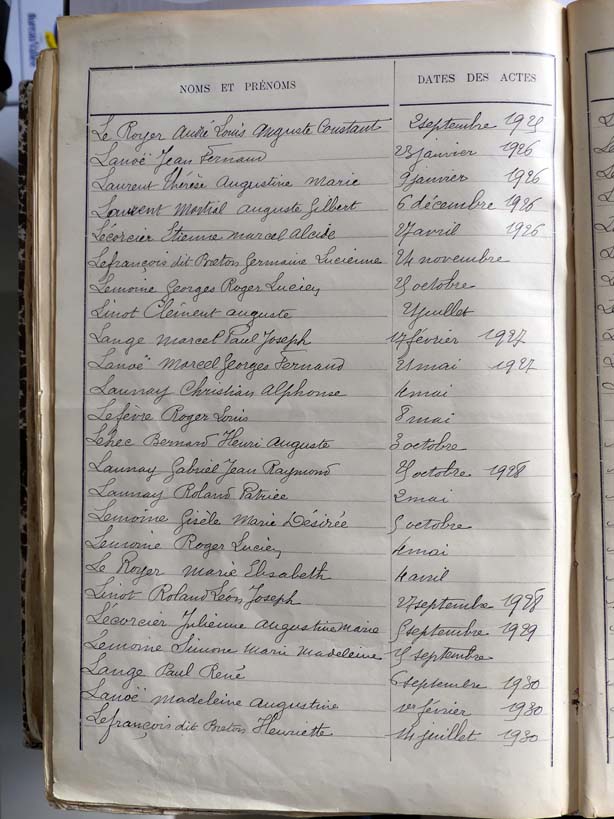 NOMS ET PRÉNOMS DATES DES ACTES
Le Royer André Louis Auguste Constant 2 septembre 1925
Lanoë Jean Fernand 23 janvier 1926
Laurent Thérèse Augustine Marie 9 janvier 1926
Laurent Martial Auguste Gilbert 6 décembre 1926
Lécorcier Etienne Marcel Alcide 27 avril 1926
Lefrançois dit Breton Germaine Lucienne 24 novembre
Lemoine Georges Roger Lucien octobre
Linot Clément Auguste juillet
Lange Marcel Paul Joseph 17 février 1927
Lanoë Marcel Georges Fernand 21 mai 1927
Launay Christian Alphonse 4 mai
Lefèvre Roger Louis 8 mai
Léhec Bernard Henri Auguste 3 octobre
Launay Gabriel Jean Raymond octobre 1928
Launay Roland Patrice 2 mai
Lemoine Gisèle Marie Désirée 5 octobre
Lemoine Roger Lucien 4 mai
Le Royer Marie Elisabeth 4 avril
Linot Roland Léon Joseph 27 septembre 1928
Lécorcier Julienne Augustine Marie 5 septembre 1929
Lemoine Simone Marie Madeleine septembre
Lange Paul René 6 septembre 1930
Lanoë Madeleine Augustine 1er février 1930
Lefrançois dit Breton Henriette 14 juillet 1930